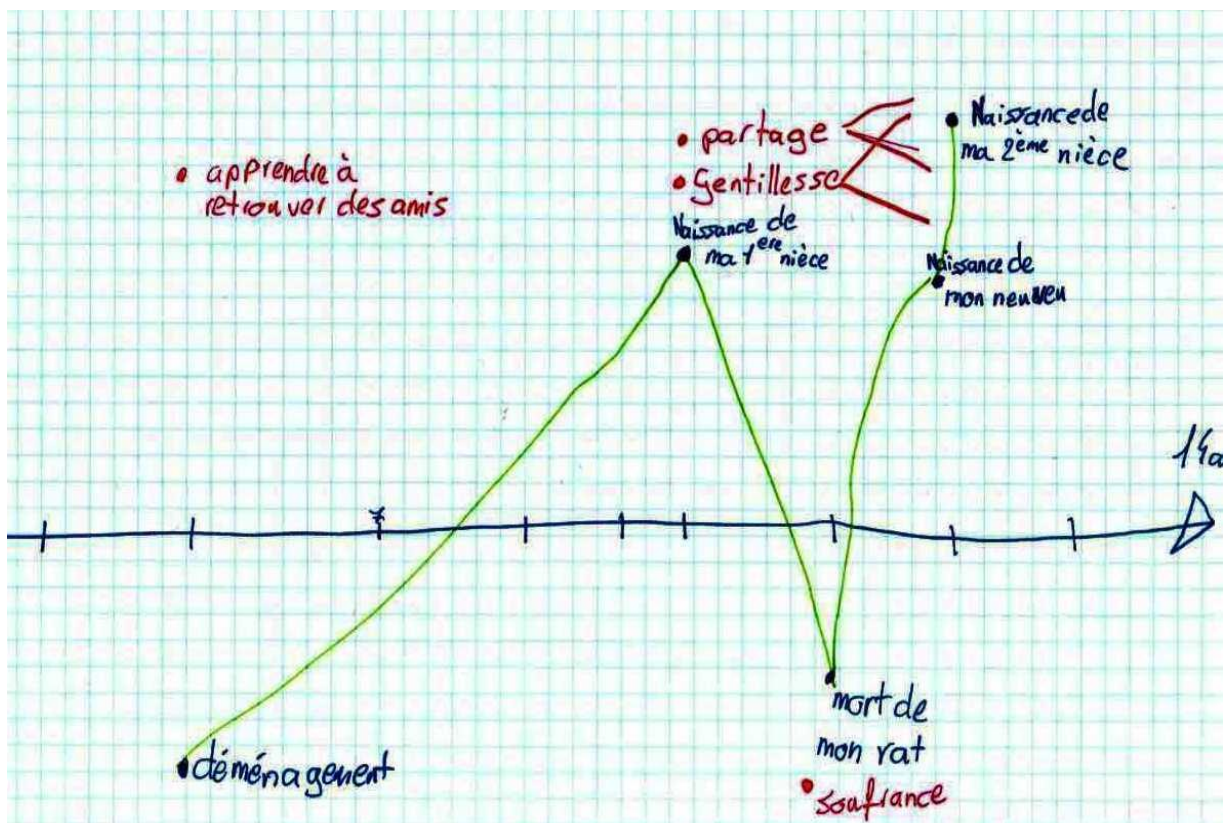 • apprendre à
retrouver des amis
• partage
• Gentillesse
Naissance de
ma 1ère nièce
Naissance de
ma 2ème nièce
Naissance de
mon neuveu
7
14a
déménagement
mort de
mon rat
• soufrance